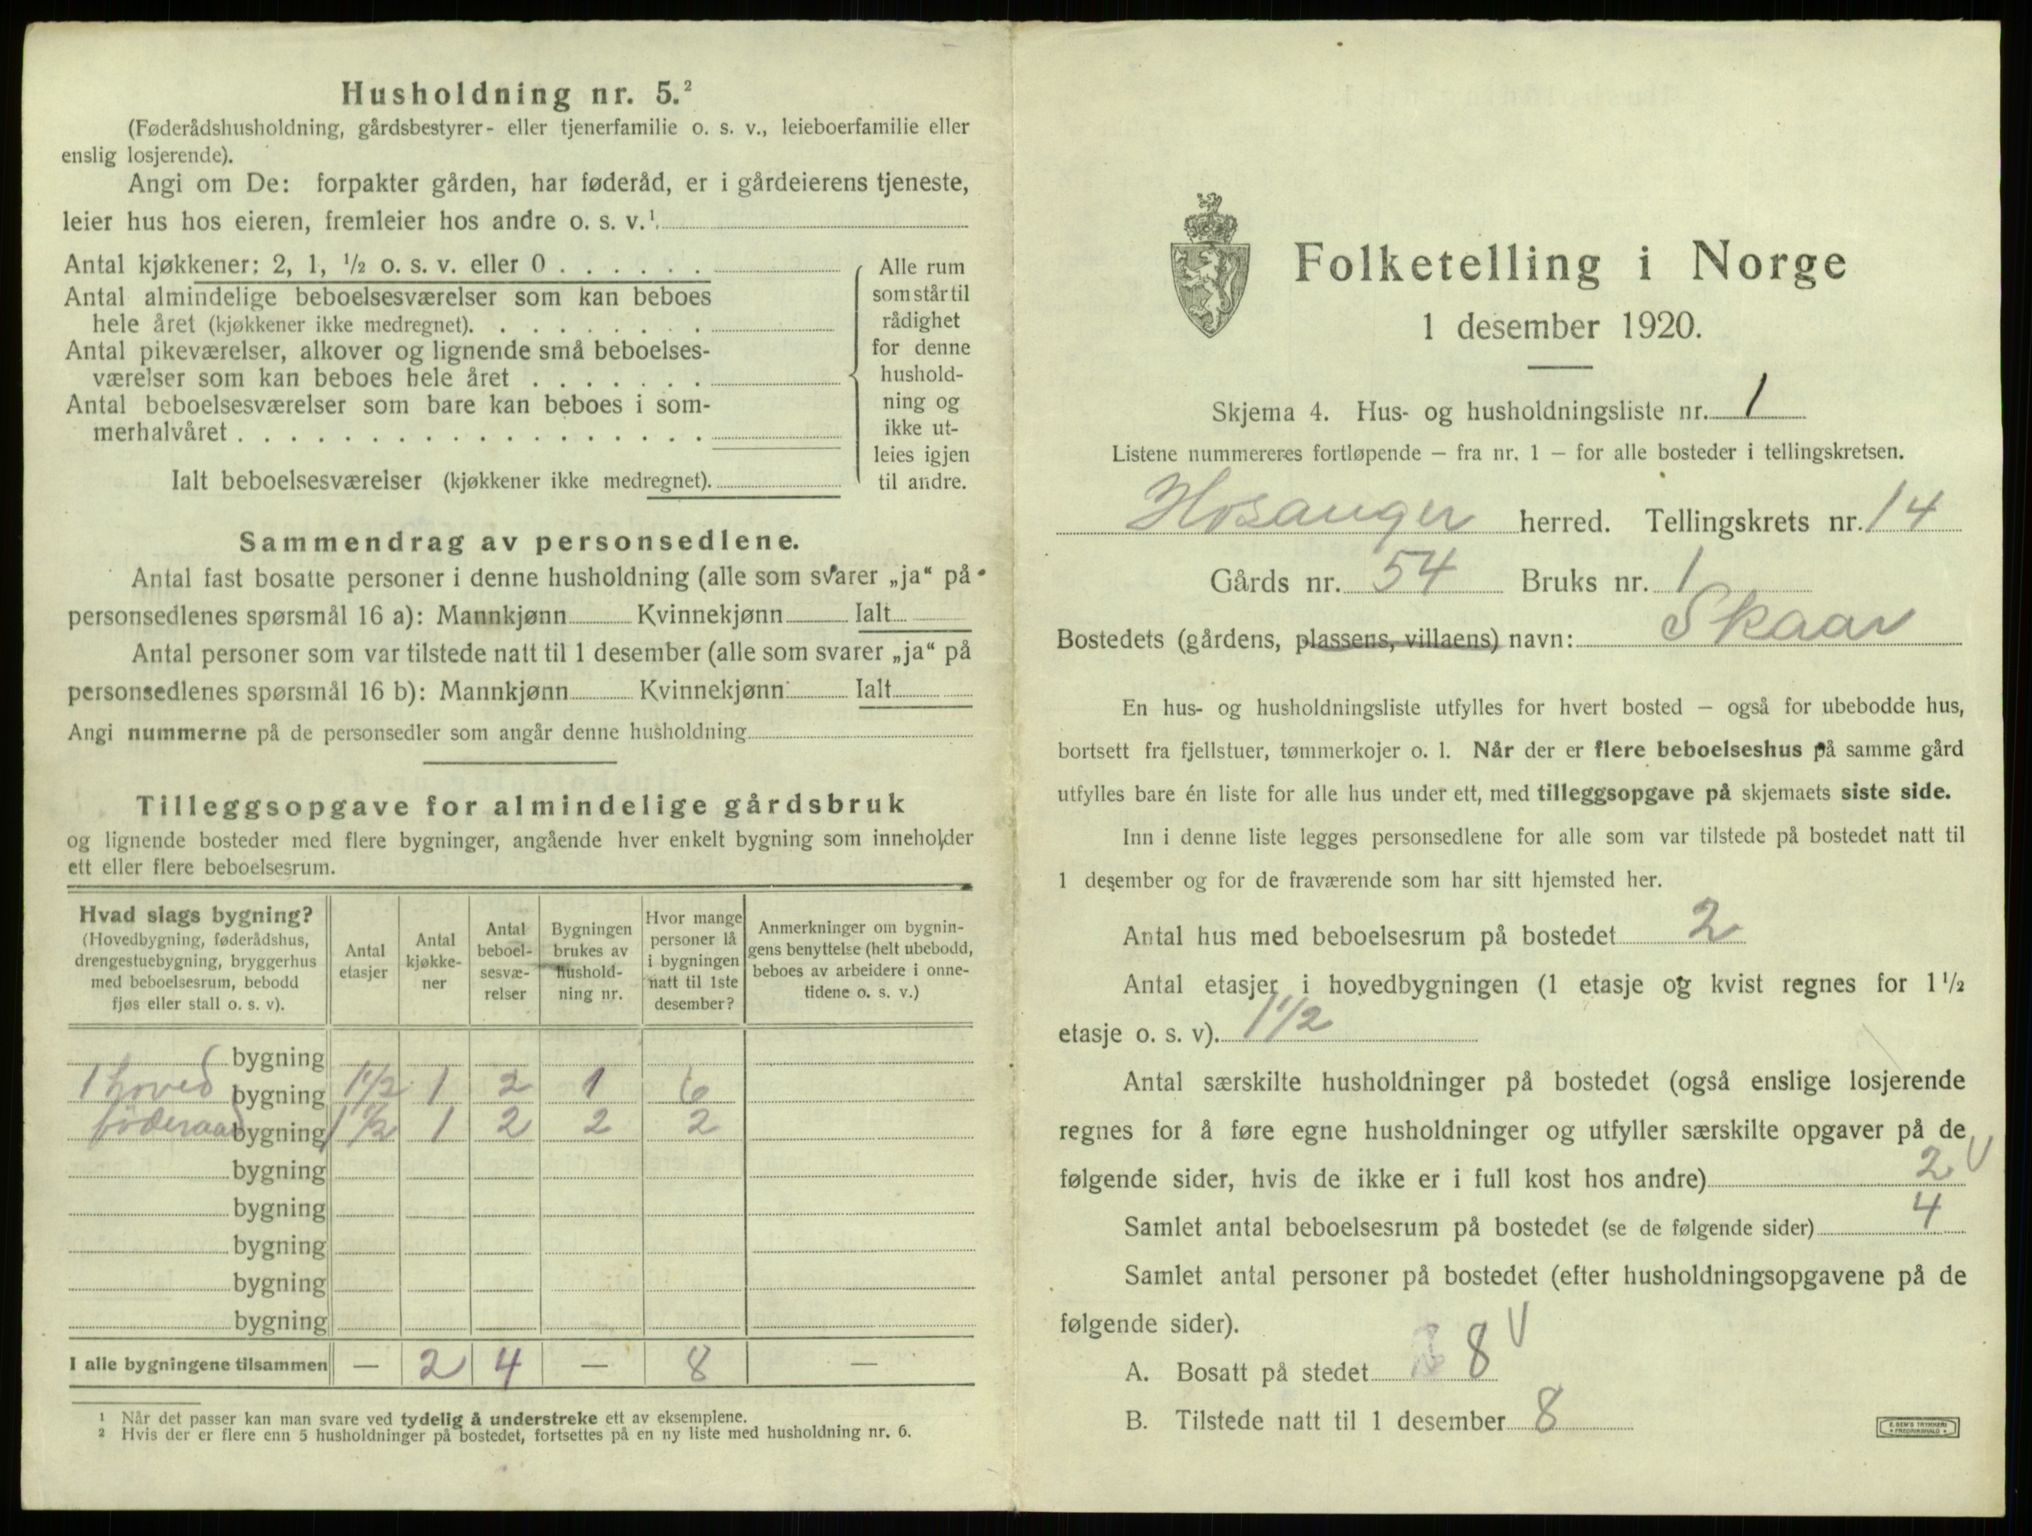 Husholdning nr. 5.²
(Føderådshusholdning, gårdsbestyrer- eller tjenerfamilie o. s. v., leieboerfamilie eller
enslig losjerende).
Angi om De: forpakter gården, har føderåd, er i gårdeierens tjeneste,
leier hus hos eieren, fremleier hos andre o. s. v.¹
Antal kjøkkener: 2, 1, ½ o. s. v. eller 0 . . . . . .
Antal almindelige beboelsesværelser som kan beboes
hele året (kjøkkener ikke medregnet). . . . . . . . .
Antal pikeværelser, alkover og lignende små beboelses-
værelser som kan beboes hele året . . . . . . .
Antal beboelsesværelser som bare kan beboes i som-
merhalvåret . . . . . . . . . . . . . . . . . .
Ialt beboelsesværelser (kjøkkener ikke medregnet).
Alle rum
som står til
rådighet
for denne
hushold-
ning og
ikke ut-
leies igjen
til andre.
Sammendrag av personsedlene.
Antal fast bosatte personer i denne husholdning (alle som svarer „ja“ på
personsedlenes spørsmål 16 a): Mannkjønn Kvinnekjønn Ialt
Antal personer som var tilstede natt til 1 desember (alle som svarer „ja“ på
personsedlenes spørsmål 16 b): Mannkjønn Kvinnekjønn Ialt
Angi nummerne på de personsedler som angår denne husholdning
Tilleggsopgave for almindelige gårdsbruk
og lignende bosteder med flere bygninger, angående hver enkelt bygning som inneholder
ett eller flere beboelsesrum.
Hvad slags bygning?
(Hovedbygning, føderådshus,
drengestuebygning, bryggerhus
med beboelsesrum, bebodd
fjøs eller stall o. s. v).
Antal
etasjer
Antal
kjøkke-
ner
Antal
beboel-
sesvæ-
relser
Bygningen
brukes av
hushold-
ning nr.
Hvor mange
personer lå
i bygningen
natt til 1ste
desember?
Anmerkninger om bygnin-
gens benyttelse (helt ubebodd,
beboes av arbeidere i onne-
tidene o. s. v.)
bygning
1 hoved bygning 1½ 1 2 1 6
føderaad bygning 1½ 1 2 2 2
bygning
bygning
bygning
bygning
bygning
I alle bygningene tilsammen — 2 4 — 8 —
¹ Når det passer kan man svare ved tydelig å understreke ett av eksemplene.
² Hvis der er flere enn 5 husholdninger på bostedet, fortsettes på en ny liste med husholdning nr. 6.
Folketelling i Norge
1 desember 1920.
Skjema 4. Hus- og husholdningsliste nr. 1
Listene nummereres fortløpende — fra nr. 1 — for alle bosteder i tellingskretsen.
Hosanger herred. Tellingskrets nr. 14
Gårds nr. 54 Bruks nr. 1
Bostedets (gårdens, plassens, villaens) navn: Skaar
En hus- og husholdningsliste utfylles for hvert bosted — også for ubebodde hus,
bortsett fra fjellstuer, tømmerkojer o. l. Når der er flere beboelseshus på samme gård
utfylles bare én liste for alle hus under ett, med tilleggsopgave på skjemaets siste side.
Inn i denne liste legges personsedlene for alle som var tilstede på bostedet natt til
1 desember og for de fraværende som har sitt hjemsted her.
Antal hus med beboelsesrum på bostedet 2
Antal etasjer i hovedbygningen (1 etasje og kvist regnes for 1½
etasje o. s. v). 1½
Antal særskilte husholdninger på bostedet (også enslige losjerende
regnes for å føre egne husholdninger og utfyller særskilte opgaver på de
følgende sider, hvis de ikke er i full kost hos andre) 2 V
Samlet antal beboelsesrum på bostedet (se de følgende sider) 4
Samlet antal personer på bostedet (efter husholdningsopgavene på de
følgende sider).
A. Bosatt på stedet 8 V
B. Tilstede natt til 1 desember 8
E. SEM'S TRYKKERI
• FREDRIKSHALD •